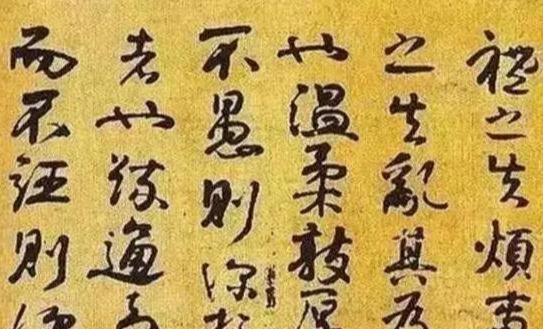 禮之失煩
之失亂其為
也溫柔敦厚
不愚則深於
者也疏通
而不誣則深